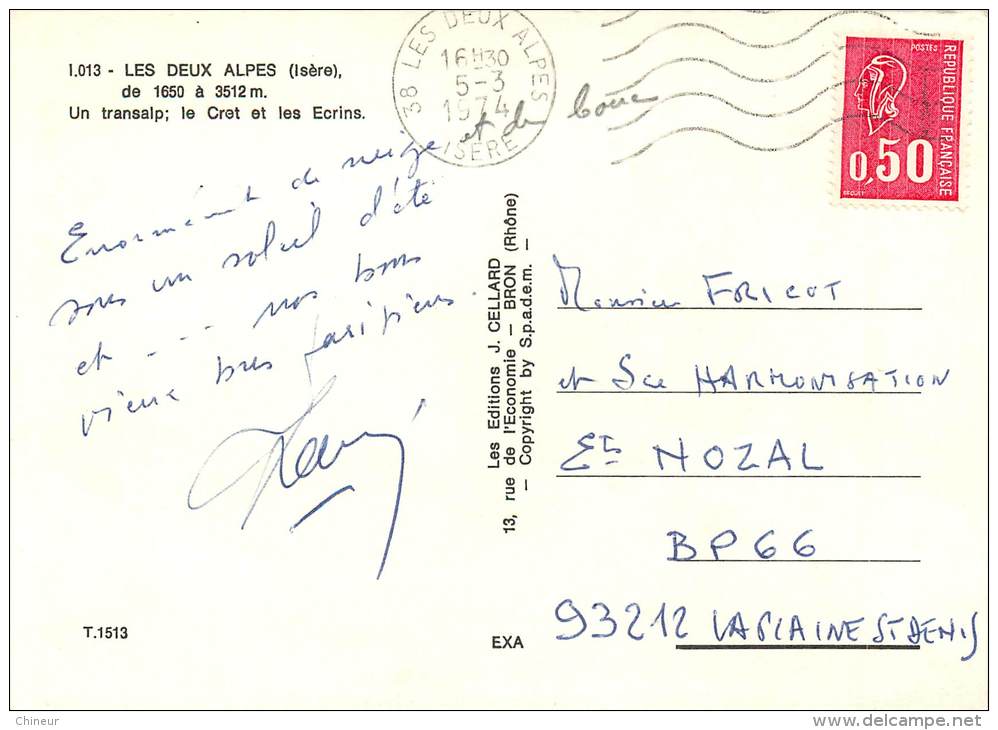 1.013 - LES DEUX ALPES (Isère),
de 1650 à 3512 m.
Un transalp; le Cret et les Ecrins.
38 LES DEUX ALPES
16H30
5-3
1974
ISERE
POSTES
REPUBLIQUE FRANÇAISE
0,50
Enormément de neige, et de
sous un soleil d'été
et - - - nos bons
vieux bus parisiens.
Les Editions J. CELLARD
13, rue de l'Economie — BRON (Rhône)
— Copyright by S.p.a.d.e.m. —
Monsieur FRICOT
et Sce HARMONISATION
Ets NOZAL
BP 66
93212 LA PLAINE ST DENIS
T.1513
EXA
Chineur
delcampe.net